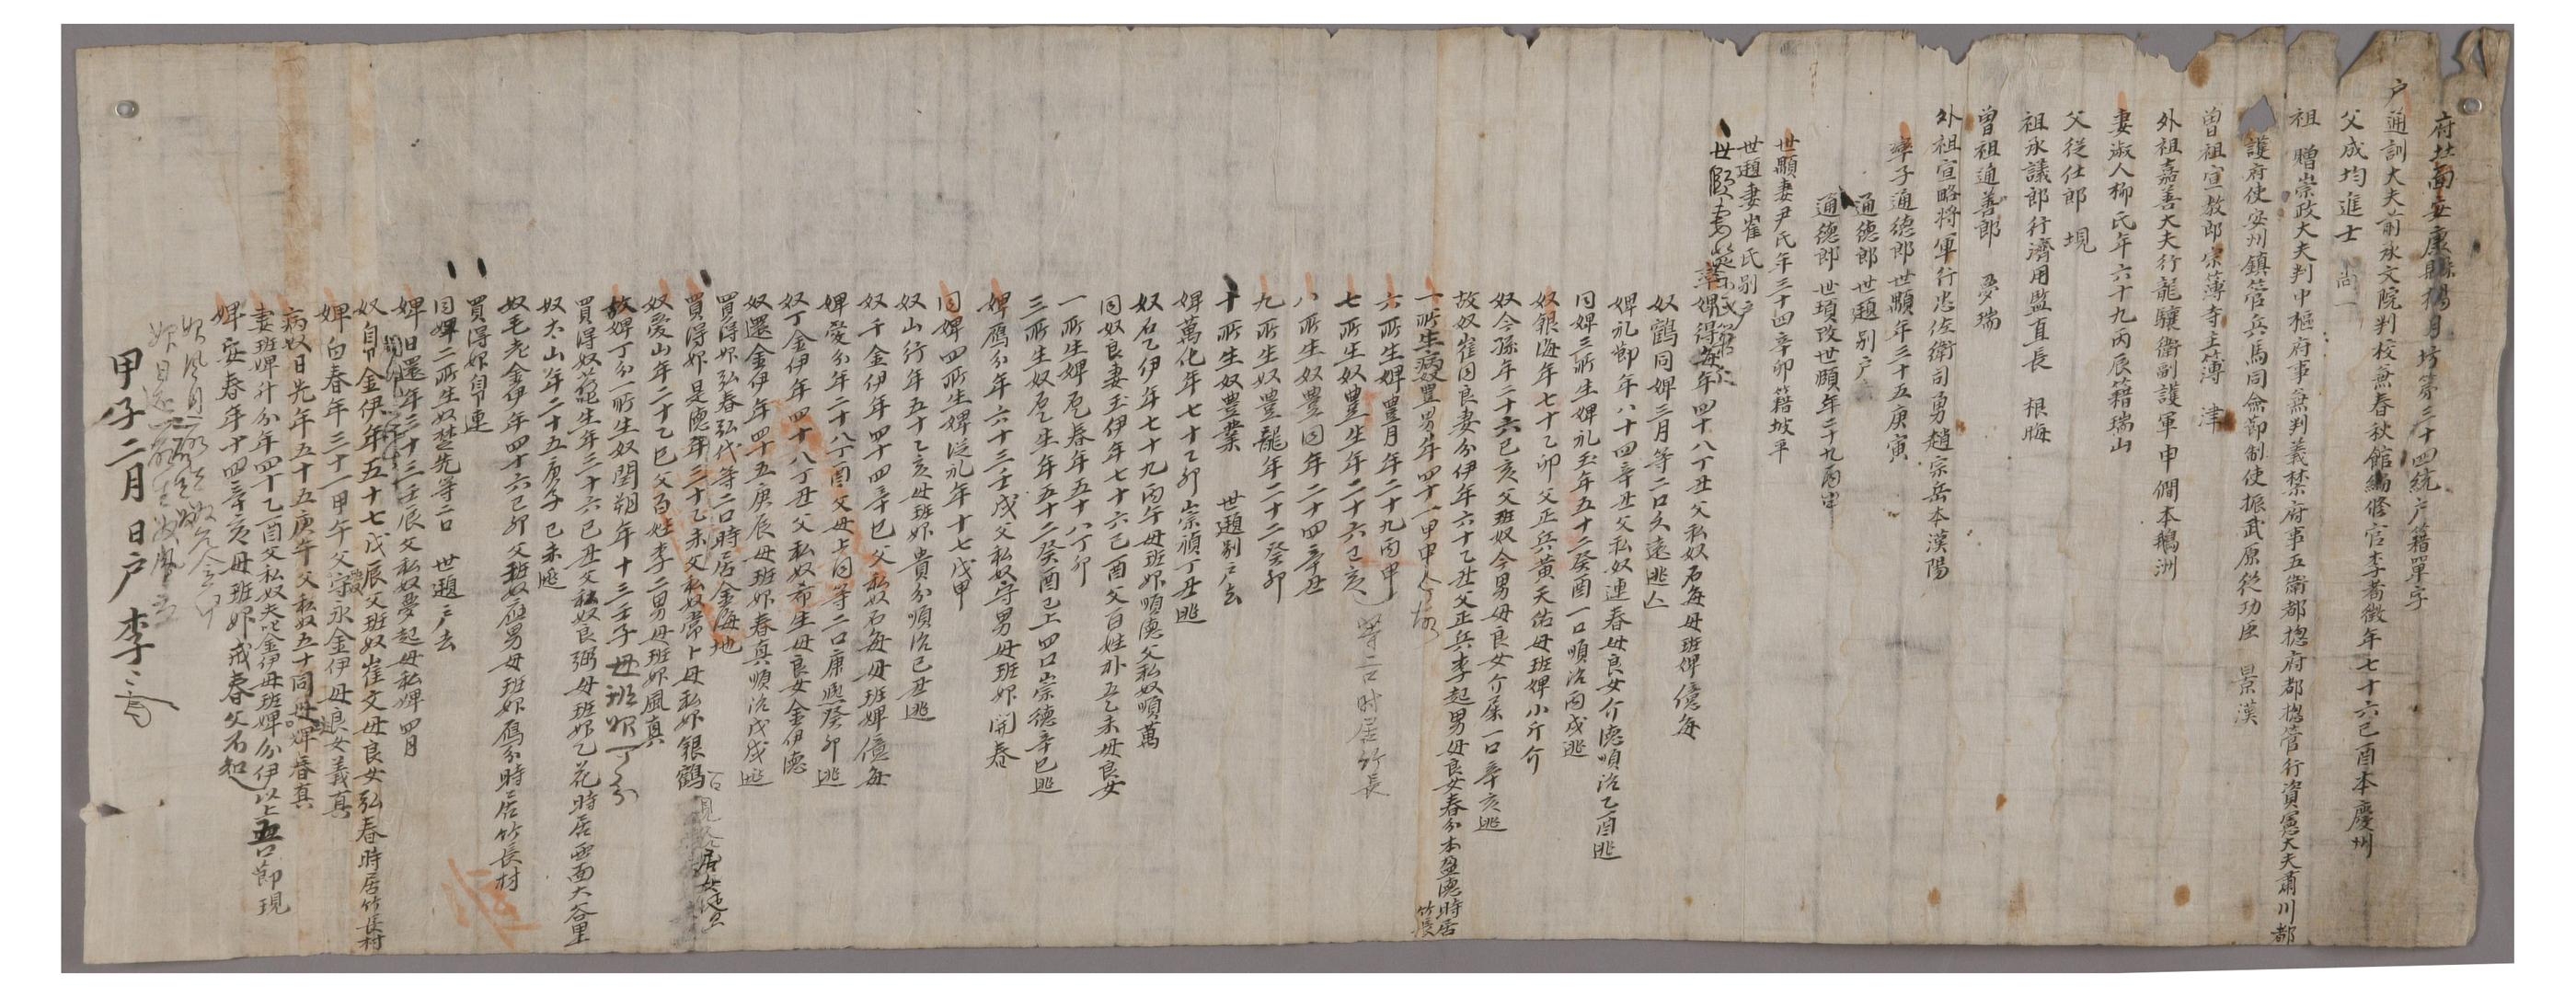 府北面安康縣楊月坊第三十四統戶籍單字
戶通訓大夫前承文院判校兼春秋館編修官李蓍徵年七十六己酉本慶州
父成均進士 尙一
祖 贈崇政大夫判中樞府事兼判義禁府事五衛都摠府都摠管行資憲大夫肅川都
護府使安州鎭管兵馬同僉節制使振武原從功臣 景漢
曾祖宣敎郎宗簿寺主簿 津
外祖嘉善大夫行龍驤衛副護軍申僩本鵝洲
妻淑人柳氏年六十九丙辰籍瑞山
父從仕郎 垷
祖承議郎行濟用監直長 根晦
曾祖通善郎 夢瑞
外祖宣略將軍行忠佐衛司勇趙宗岳本漢陽
率子通德郎世顯年三十五庚寅
通德郎世題別戶
通德郎世頊改世頤年二十九丙申
世顯妻尹氏年三十四辛卯籍坡平
世題妻崔氏別戶
世頤妻
率婢得每年四十八丁丑父私奴石每母班婢億每
奴鶴同婢三月等二口久遠逃亡
婢礼節年八十四辛丑父私奴連春母良女介德順治乙酉逃
同婢三所生婢礼玉年五十二癸酉一口順治丙戌逃
奴銀海年七十乙卯父正兵黃天佑母班婢小斤介
奴今孫年二十六己亥父班奴今男母良女介屎一口辛亥逃
故奴崔同良妻分伊年六十乙丑父正兵李起男母良女春分本盈德時居竹長
一所生病奴豊男年四十一甲申
六所生婢豊月年二十九丙申
七所生奴豊生年二十六己亥 等二口時居竹長
八所生奴豊同年二十四辛丑
九所生奴豊龍年二十二癸卯
十所生奴豊業 世題別戶去
婢萬化年七十乙卯崇禎丁丑逃
奴石乙伊年七十九丙午母班婢順德父私奴順萬
同奴良妻玉伊年七十六己酉父百姓朴五乙未母良女
一所生婢㖙春年五十八丁卯
三所生奴㖙生年五十二癸酉已上四口崇德辛巳逃
婢鷹分年六十三壬戌父私奴守男母班婢開春
同婢四所生婢從礼年十七戊申
奴山行年五十乙亥母班婢貴分順治己丑逃
奴千金伊年四十四辛巳父私奴石每母班婢億每
婢愛分年二十八丁酉父母上同等二口康熙癸卯逃
奴丁金伊年四十八丁丑父私奴希生母良女金伊德
奴還金伊年四十五庚辰母班婢春真順治戊戌逃
買得婢弘春弘代等二口時居金海地
買得婢是德年三十乙未父私奴常卜母私婢銀鶴
奴愛山年二十乙巳父百姓李二男母班婢風真
故婢丁分一所生奴閏朔年十三壬子母班婢丁分
買得奴範生年三十六己丑父私奴良弼母班婢乙花時居西面大谷里
奴太山年二十五庚子己未逃
奴毛老金伊年四十六己卯父班奴應男母班婢鷹分時居竹長村
買得婢自連
同婢二所生奴楚先等二口 世題戶去
婢日還年三十三壬辰父私奴夢起母私婢四月
奴自金伊年五十七戊辰父班奴崔文母良女弘春時居竹長村
婢白春年三十一甲午父守永金伊母良女義真
病奴日先年五十五庚午父私奴五十同母婢春真
妻班婢汁分年四十乙酉父私奴夫叱金伊母班婢分伊以上五口節現
婢安春年十四辛亥母班婢戒春父不知
甲子二月 日戶 李